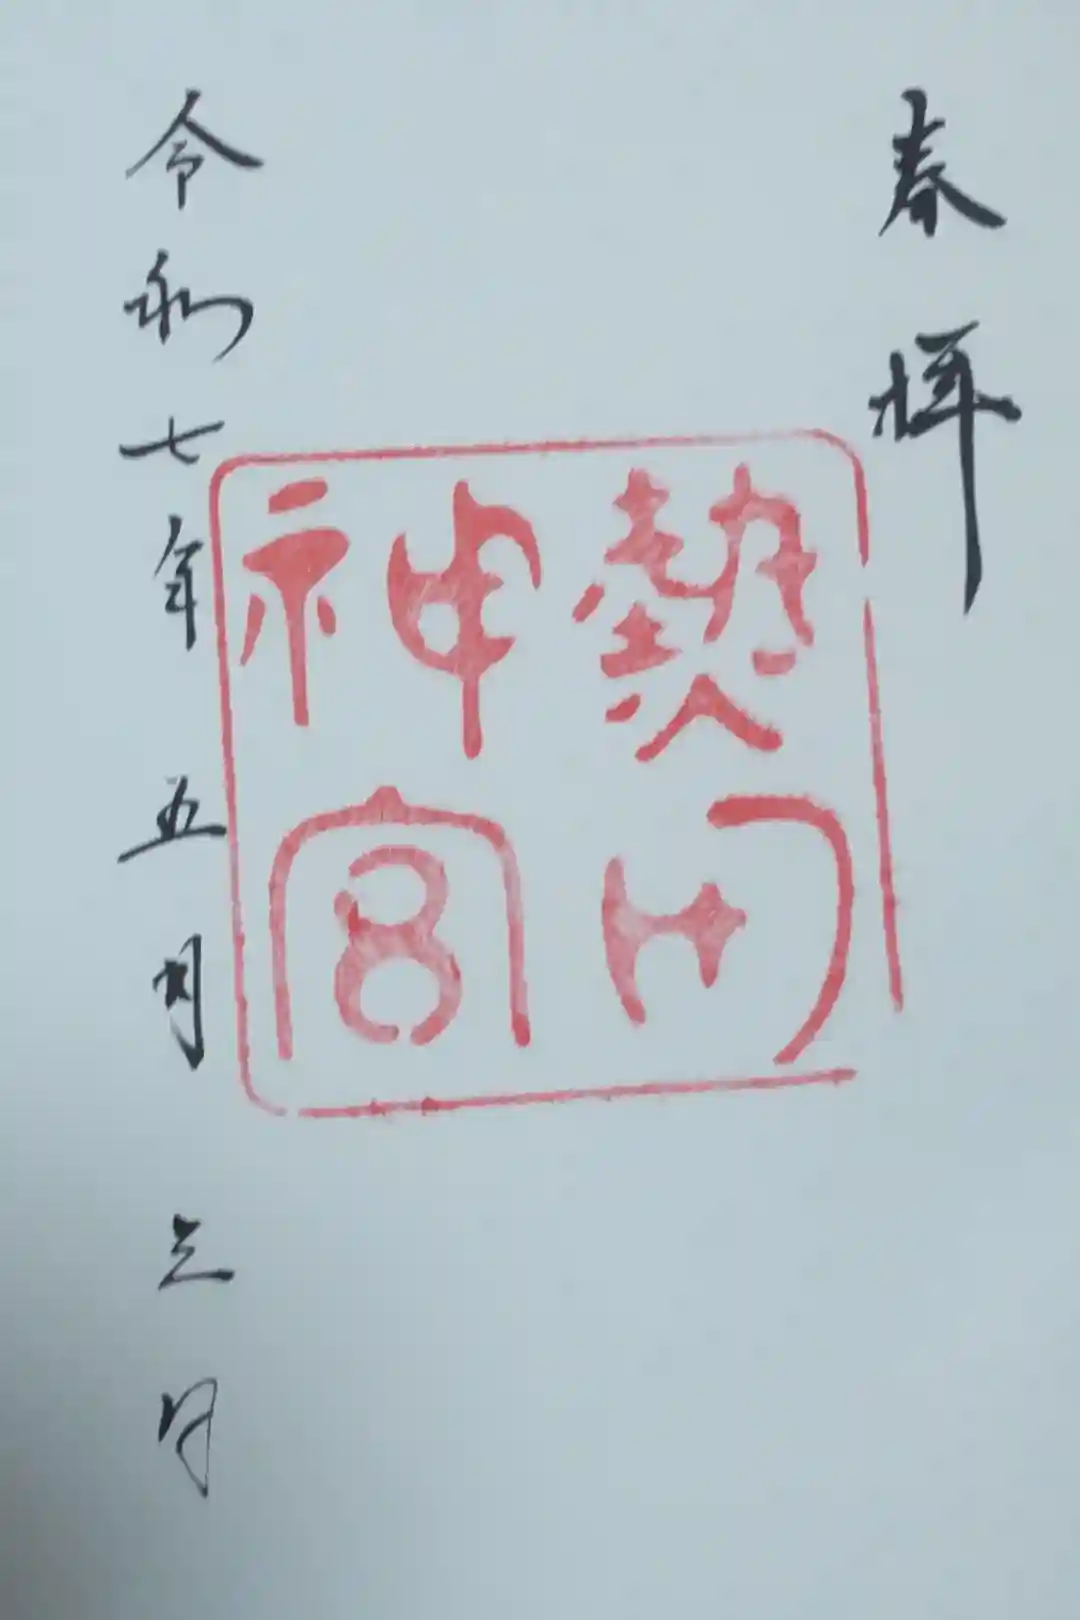 奉拝
熱田
神宮
令和七年 五月 三日